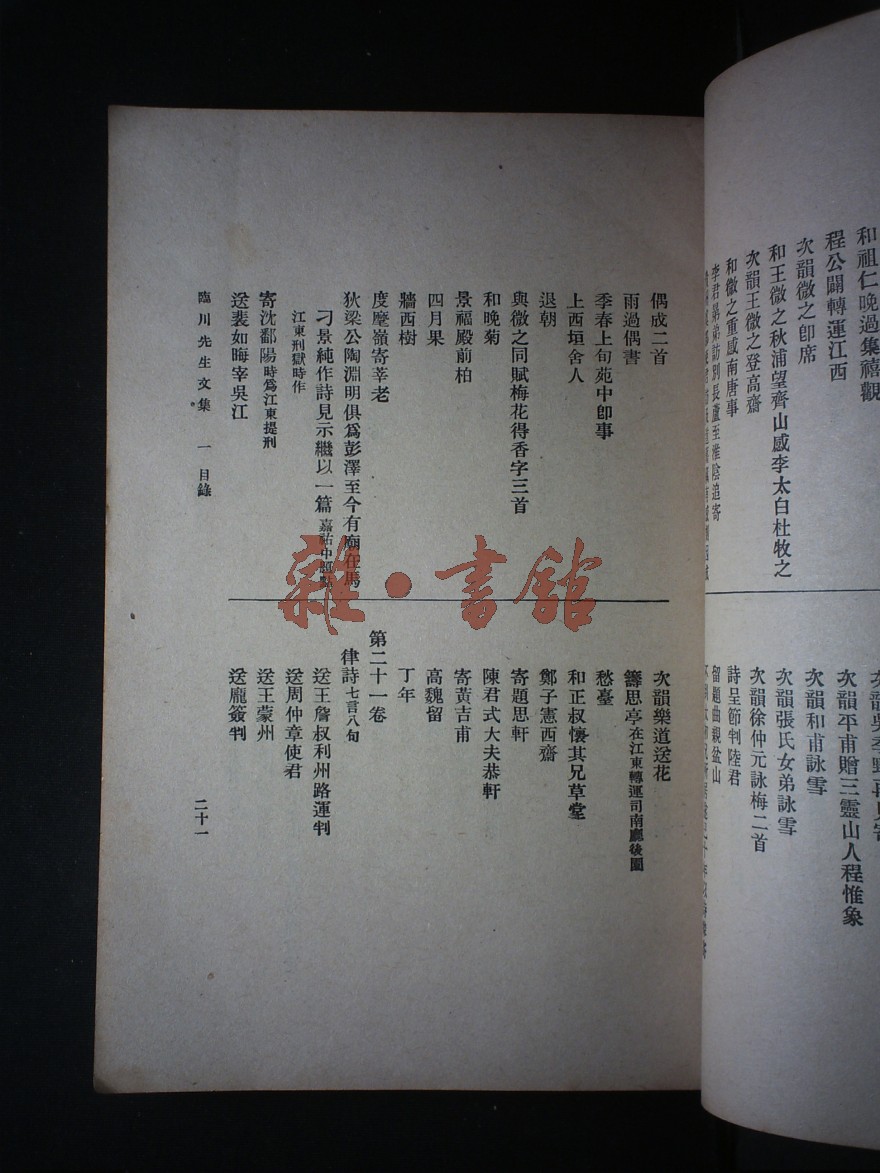 和祖仁晚過集禧觀
程公闢轉運江西
次韻微之卽席
和王微之秋浦望齊山感李太白杜牧之
次韻王微之登高齋
和微之重感南唐事
李君昆弟訪別長蘆至淮陰追寄
次韻平甫贈三靈山人程惟象
次韻和甫詠雪
次韻張氏女弟詠雪
次韻徐仲元詠梅二首
詩呈節判陸君
留題曲親盆山
偶成二首
雨過偶書
季春上旬苑中卽事
上西垣舍人
退朝
與微之同賦梅花得香字三首
和晚菊
景福殿前柏
四月果
牆西樹
度麾嶺寄莘老
狄梁公陶淵明俱爲彭澤至今有廟在焉
刁景純作詩見示繼以一篇 嘉祐中
江東刑獄時作
寄沈鄱陽 時爲江東提刑
送裴如晦宰吳江
次韻樂道送花
籌思亭 在江東轉運司南廳後圃
愁臺
和正叔懷其兄草堂
鄭子憲西齋
寄題思軒
陳君式大夫恭軒
寄黃吉甫
高魏留
丁年
第二十一卷
律詩 七言八句
送王詹叔利州路運判
送周仲章使君
送王蒙州
送龐簽判
臨川先生文集 一 目錄
二十一
雜·書館